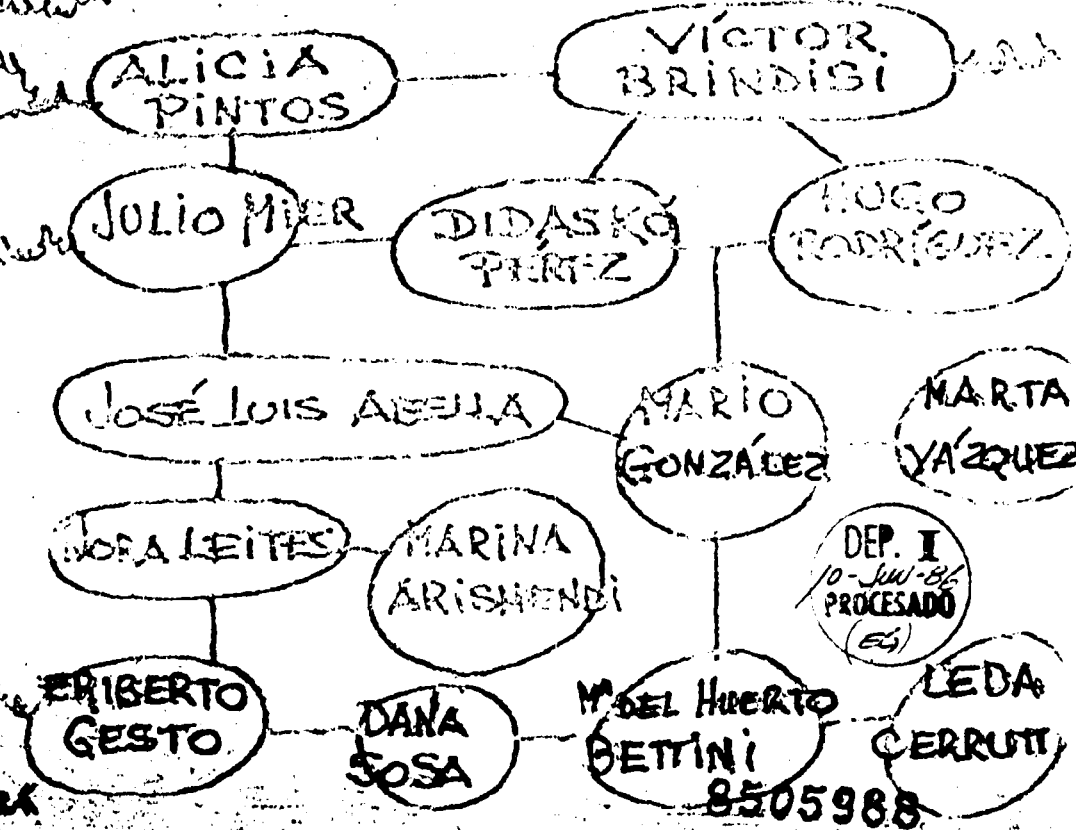 ALICIA
PINTOS
VÍCTOR
BRINDISI
JULIO MIER
DIDASKÓ
PÉREZ
HUGO
RODRÍGUEZ
JOSÉ LUIS ABELLA
MARIO
GONZÁLEZ
MARTA
VÁZQUEZ
NORA LEITES
MARINA
ARISMENDI
DEP. I
10-JUN-86
PROCESADO
(EG)
ERIBERTO
GESTO
DANA
SOSA
Mª DEL HUERTO
BETTINI
LEDA
CERRUTTI
8505988